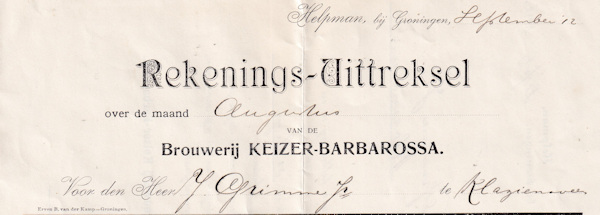 Helpman, bij Groningen, September '12
Rekenings-Uittreksel
over de maand Augustus
VAN DE
Brouwerij KEIZER-BARBAROSSA.
Voor den Heer J Grimme Jr te Klazienaveen
Erven B. van der Kamp—Groningen.